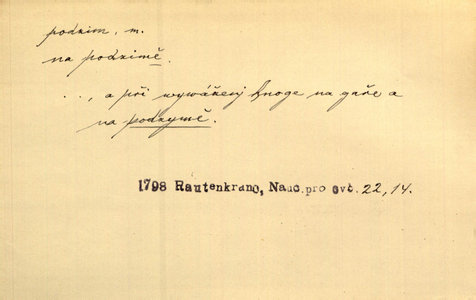 podzim, m.
na podzimě.
..., a při wywáženj hnoge na gaře a
na podzymě.
1798 Rautenkranc, Nauc.pro ovč. 22, 14.